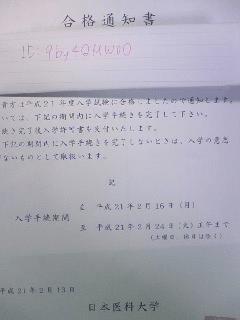 合格通知書
ID:9by42HWD0
貴方は平成21年度入学試験に合格しましたので通知します。
ついては、下記の期間内に入学手続きを完了して下さい。
手続き完了後入学許可書を交付いたします。
下記の期間内に入学手続きを完了しないときは、入学の意志
がないものとして取扱います。
記
入学手続期間
自 平成21年2月16日(月)
至 平成21年2月24日(火)正午まで
(土曜日、休日は除く)
平成21年2月13日
日本医科大学